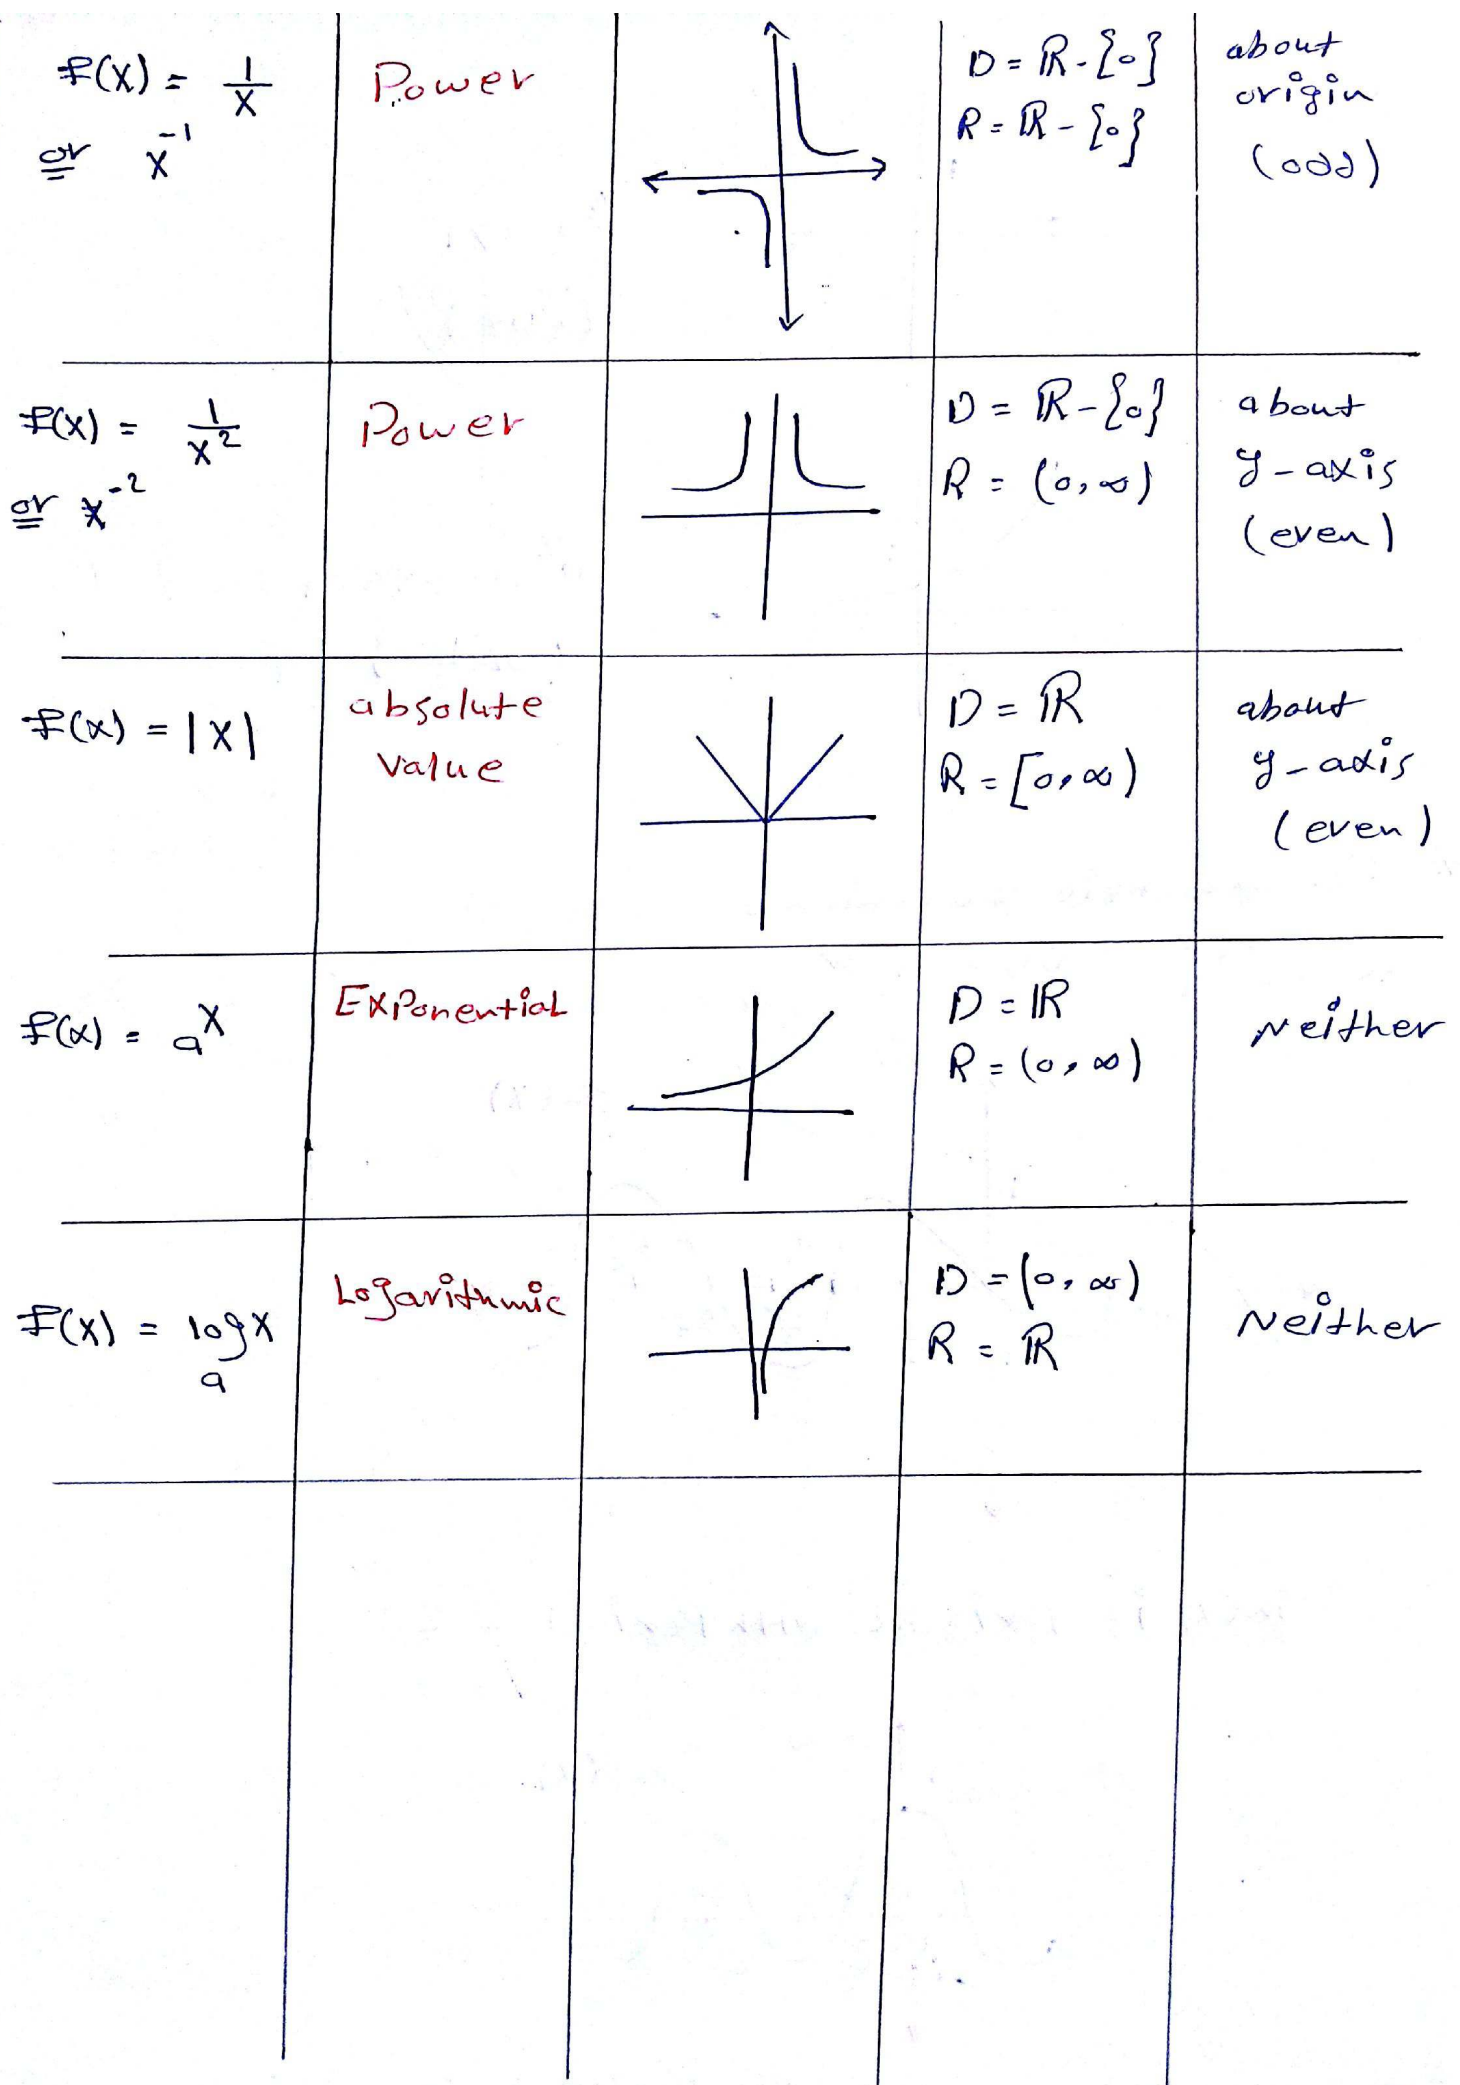 f(x) = 1/x
or x⁻¹
Power
D = ℝ - {0}
R = ℝ - {0}
about
origin
(odd)
f(x) = 1/x²
or x⁻²
Power
D = ℝ - {0}
R = (0, ∞)
about
y-axis
(even)
f(x) = |x|
absolute
value
D = ℝ
R = [0, ∞)
about
y-axis
(even)
f(x) = aˣ
Exponential
D = ℝ
R = (0, ∞)
Neither
f(x) = logₐx
Logarithmic
D = (0, ∞)
R = ℝ
Neither